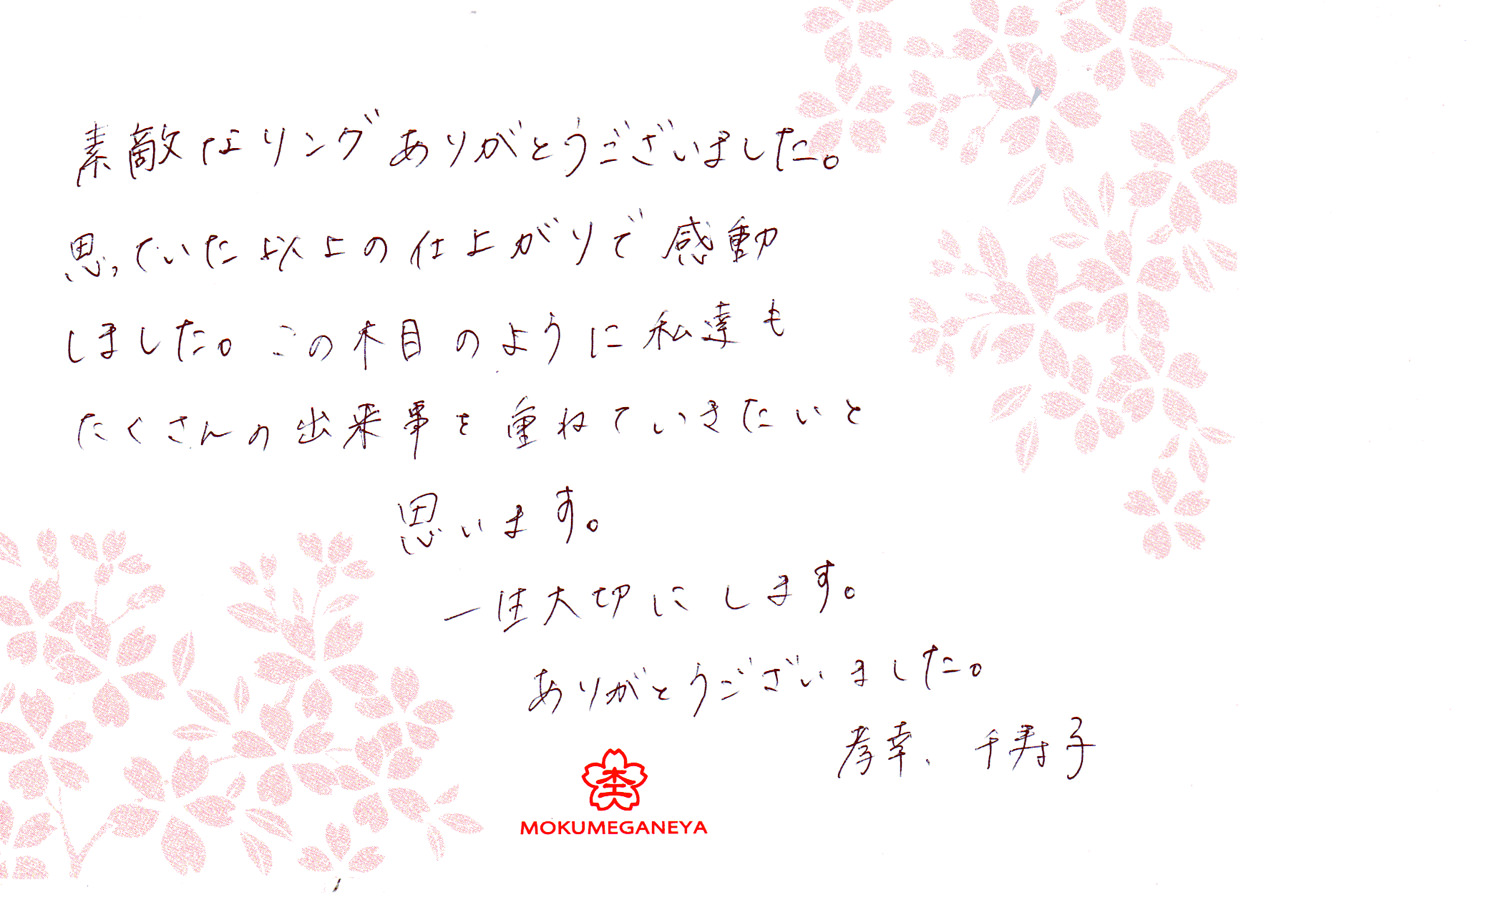 素敵なリングありがとうございました。
思っていた以上の仕上がりで感動
しました。この木目のように私達も
たくさんの出来事を重ねていきたいと
思います。
一生大切にします。
ありがとうございました。
孝幸、千寿子
MOKUMEGANEYA